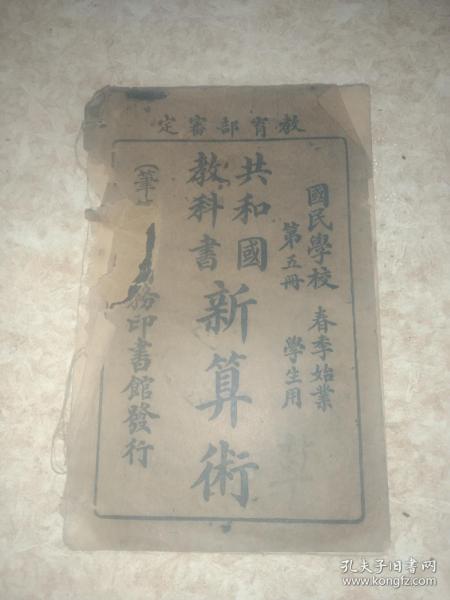 教育部審定
國民學校 春季始業
第五冊 學生用
共和國
教科書
新算術
（筆
務印書館發行
孔夫子旧书网
www.kongfz.com